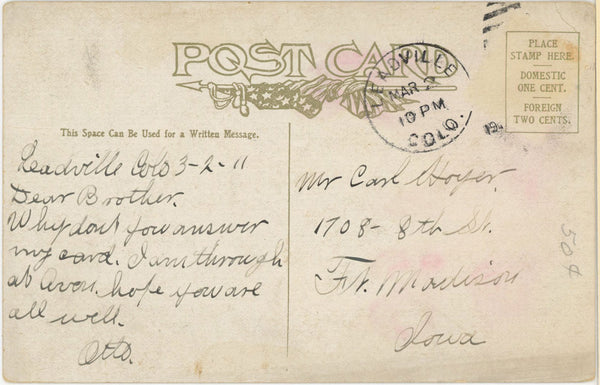 POST CARD
LEADVILLE
MAR 2
10 PM
COLO.
PLACE
STAMP HERE.
DOMESTIC
ONE CENT.
FOREIGN
TWO CENTS.
This Space Can Be Used for a Written Message.
Leadville Colo 3-2-11
Dear Brother.
Why don't you answer
my card. I am through
at Avon. hope you are
all well.
Otto.
Mr Carl Hoyer.
1708- 8th St.
Ft. Madison
Iowa
50¢